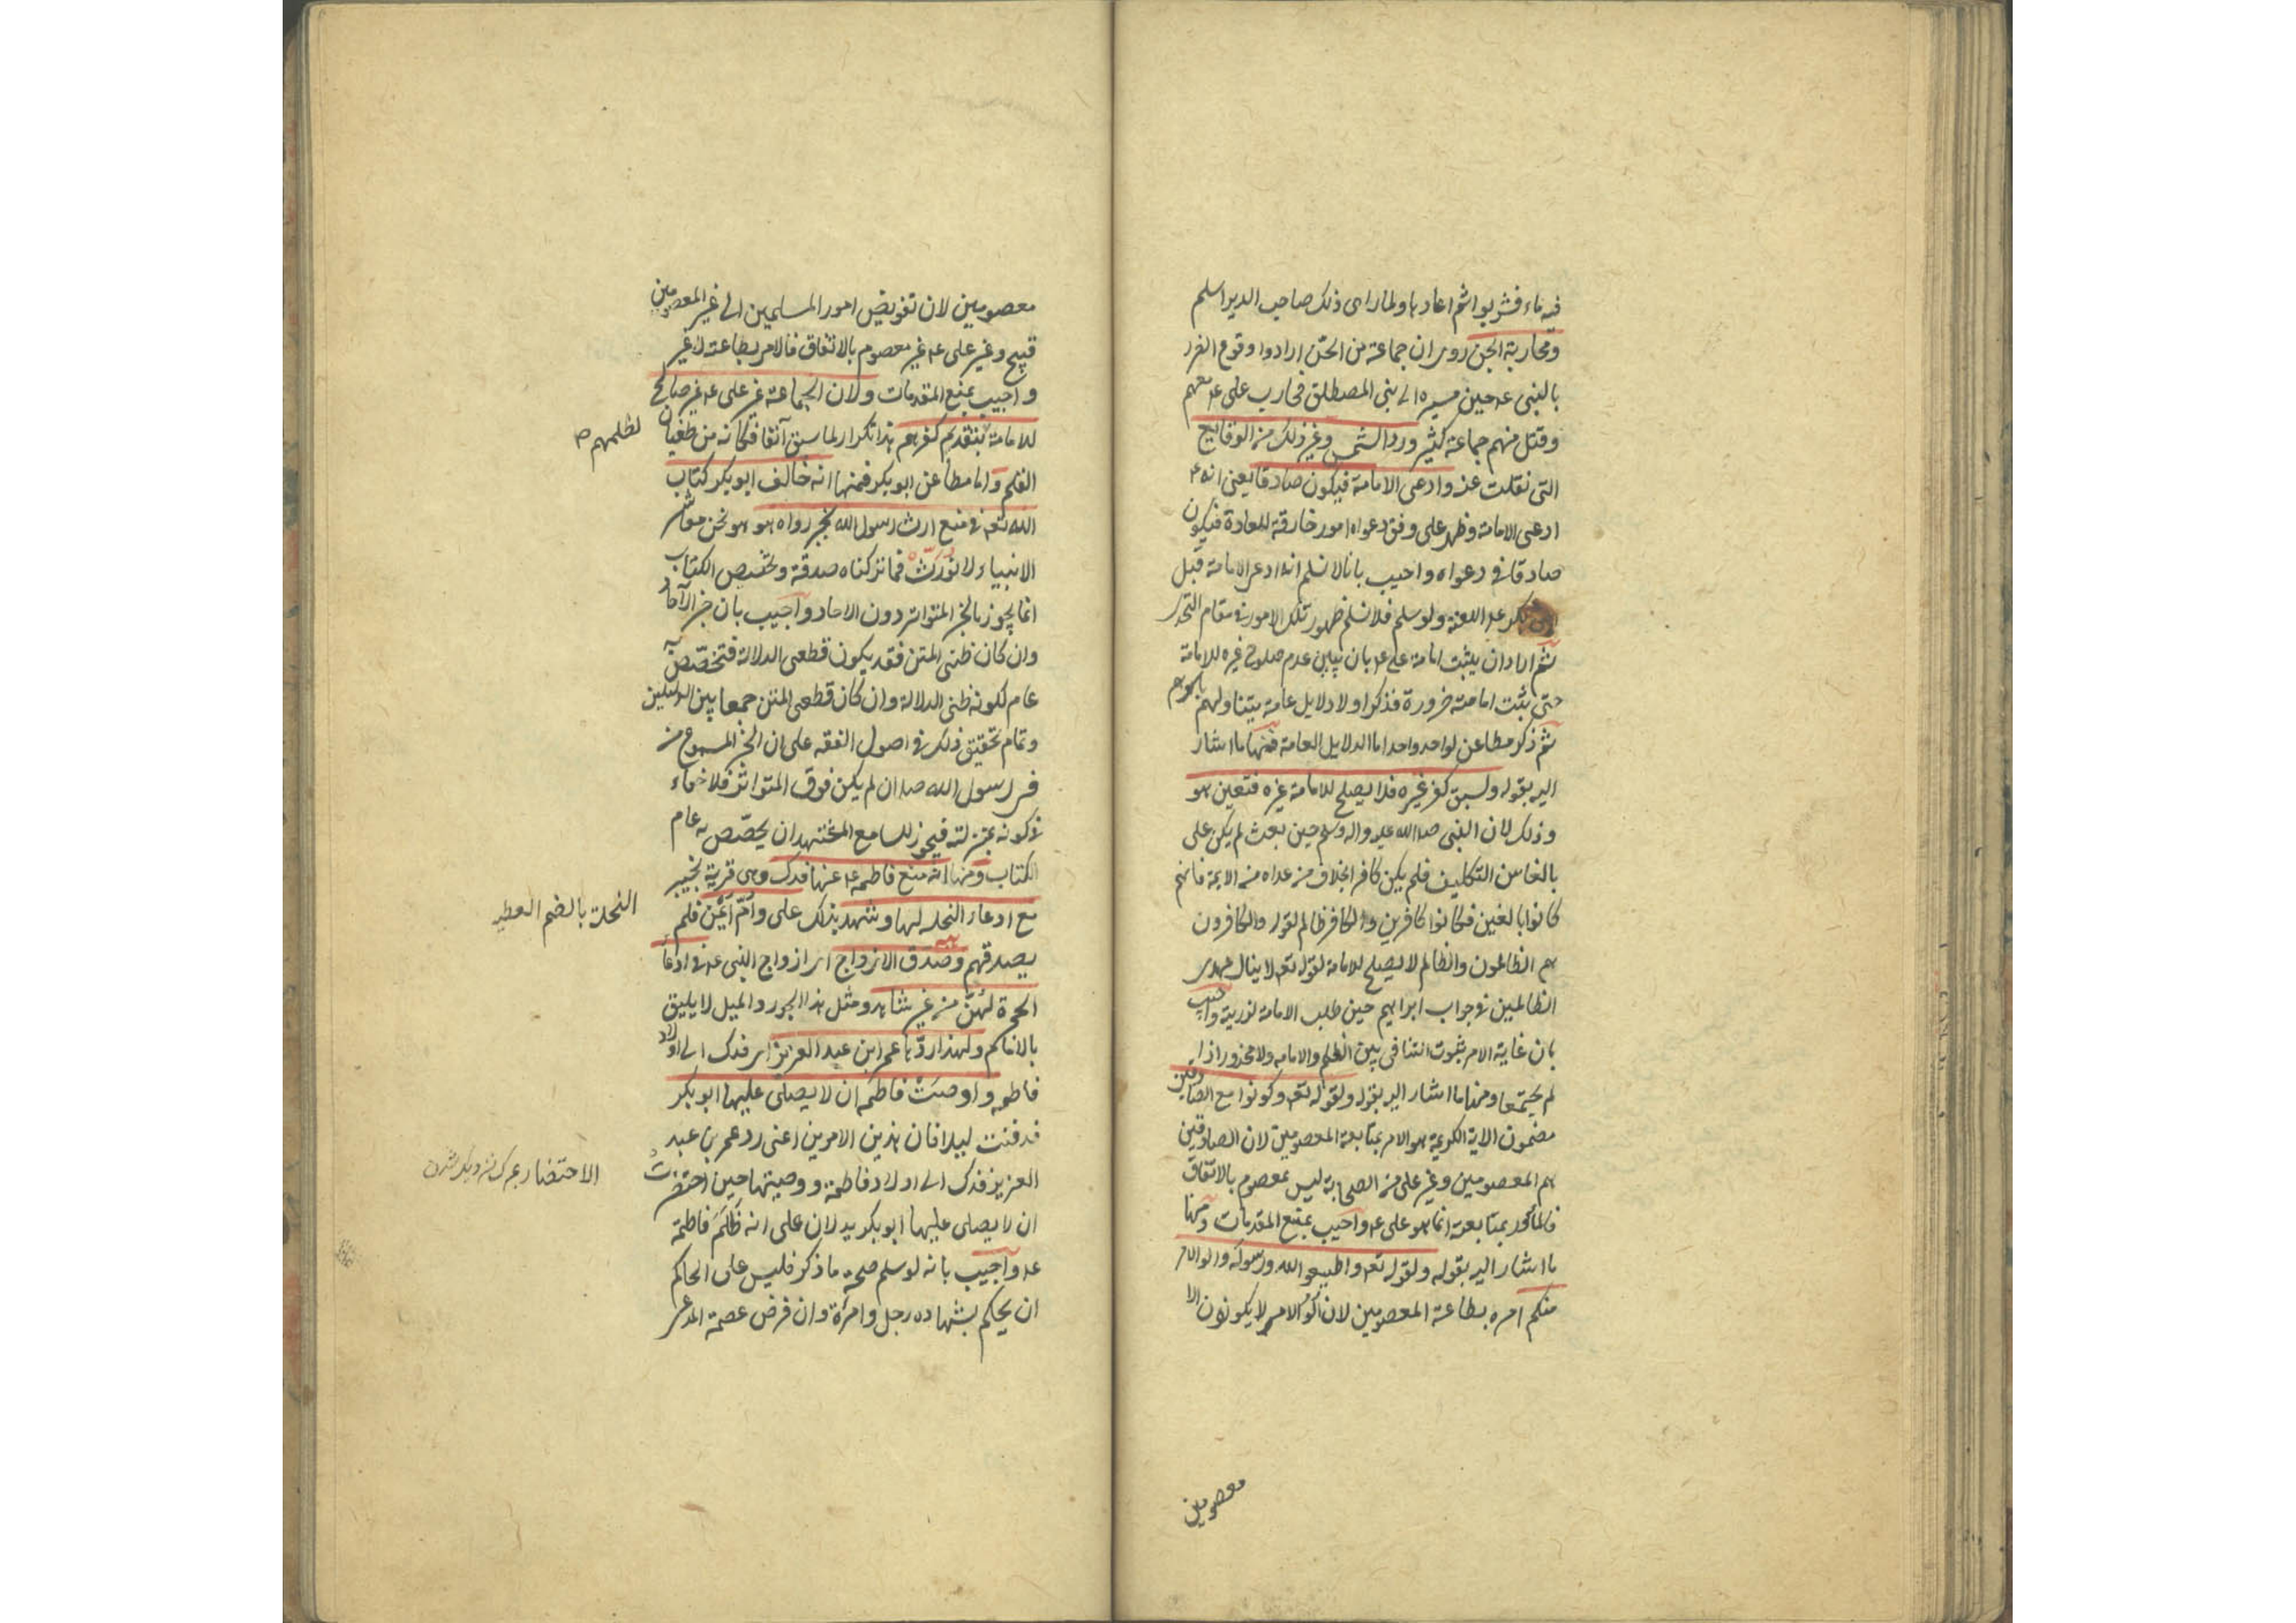 فيه ماء فشربوا ثم اعادها ولما راى ذلك صاحب الدير اسلم
ومحاربة الجن روى ان جماعة من الجن ارادوا وقوع الضرر
بالنبى عم حين مسيره الى بنى المصطلق فحارب على عم معهم
وقتل منهم جماعة كثير ورد الشمس وغير ذلك من الوقايع
التى نقلت عنه وادعى الامامة فيكون صادقا يعنى انه عم
ادعى الامامة وظهر على وفق دعواه امور خارقة للعادة فيكون
صادقا فى دعواه واجيب بانا لا نسلم انه ادعى الامامة قبل
عم الاعنه ولو سلم فلا نسلم ظهور تلك الامور فى مقام التحدى
ثم اراد ان يثبت امامة على عم بان يبين عدم صلوح غيره للامامة
حتى يثبت امامته ضرورة فذكر اولا دلايل عامة يتناولهم باجمعهم
ثم ذكر مطاعن لواحد واحد اما الدلايل العامة فمنها ما اشار
اليه بقوله ولسبق كفر غيره فلا يصلح للامامة غيره فتعين هو
وذلك لان النبى صلى الله عليه واله وسلم حين بعث لم يكن على
بالغا سن التكليف فلم يكن كافرا بخلاف من عداه من الايمة فانهم
كانوا بالغين فكانوا كافرين والكافر ظالم لقوله والكافرون
هم الظالمون والظالم لا يصلح للامامة لقوله تعه لا ينال عهدى
الظالمين فى جواب ابراهيم حين طلب الامامة لذريته واجيب
بان غاية الامر ثبوت التنافى بين الظلم والامامه ولا محذور اذا
لم يجتمعا ومنها ما اشار اليه بقوله ولقوله تعه وكونوا مع الصادقين
مضمون الاية الكريمة هو الامر بمتابعة المعصومين لان الصادقين
هم المعصومين وغير على من الصحابة ليس بمعصوم بالاتفاق
فالمأمور بمتابعته انما هو على عم واجيب بمنع المقدمات ومنها
ما اشار اليه بقوله ولقوله تعه واطيعوا الله ورسوله واولوا الامر
منكم امره بطاعة المعصومين لان اولو الامر لا يكونون الا
معصومين
معصومين لان تفويض امور المسلمين الى غير المعصومين
قبيح وغير على عم غير معصوم بالاتفاق فالامر بطاعته لا غير
واجيب بمنع المقدمات ولان الجماعة غير على عم غير صالح
للامامة بتقدم كفرهم هذا تكرار لما سبق آنفا فكانه من طغيان
لظلمهم
القلم واما مطاعن ابو بكر فمنها انه خالف ابو بكر كتاب
الله تعه فى منع ارث رسول الله بخبر رواه هو وهو نحن معاشر
الانبياء لا نورث فما تركناه صدقة وتخصيص الكتاب
انما يجوز بالخبر المتواتر دون الاحاد واجيب بان خبر الآحاد
وان كان ظنى المتن فقد يكون قطعى الدلالة فتخصص به
عام لكونه ظنى الدلالة وان كان قطعى المتن جمعا بين الدليلين
وتمام تحقيق ذلك فى اصول الفقه على ان الخبر المسموع من
فى رسول الله ص ان لم يكن فوق المتواتر فلا خفاء
فى كونه بمنزلته فيجوز للسامع المجتهد ان يخصص به عام
الكتاب ومنها انه منع فاطمة عم عنها فدك وهى قرية بخيبر
مع ادعاء النحلة لها وشهد بذلك على وام ايمن فلم
النحلة بالضم العطية
يصدقهم وصدق الازواج اى ازواج النبى عم فى ادعاء
الحجرة لهن من غير شاهد ومثل هذا الجور والميل لا يليق
بالامام ولهذا ردها عمر ابن عبد العزيز اى فدك الى اولاد
فاطمه واوصت فاطمه ان لا يصلى عليها ابو بكر
فدفنت ليلا فان هذين الامرين اعنى رد عمر بن عبد
العزيز فدك الى اولاد فاطمة ووصيتها حين احتضرت
الاحتضار بمرك نزديك شدن
ان لا يصلى عليها ابو بكر يدلان على انه ظلم فاطمة
عم واجيب بانه لو سلم صحة ما ذكر فليس على الحاكم
ان يحكم بشهاده رجل وامراة وان فرض عصمة المدعى